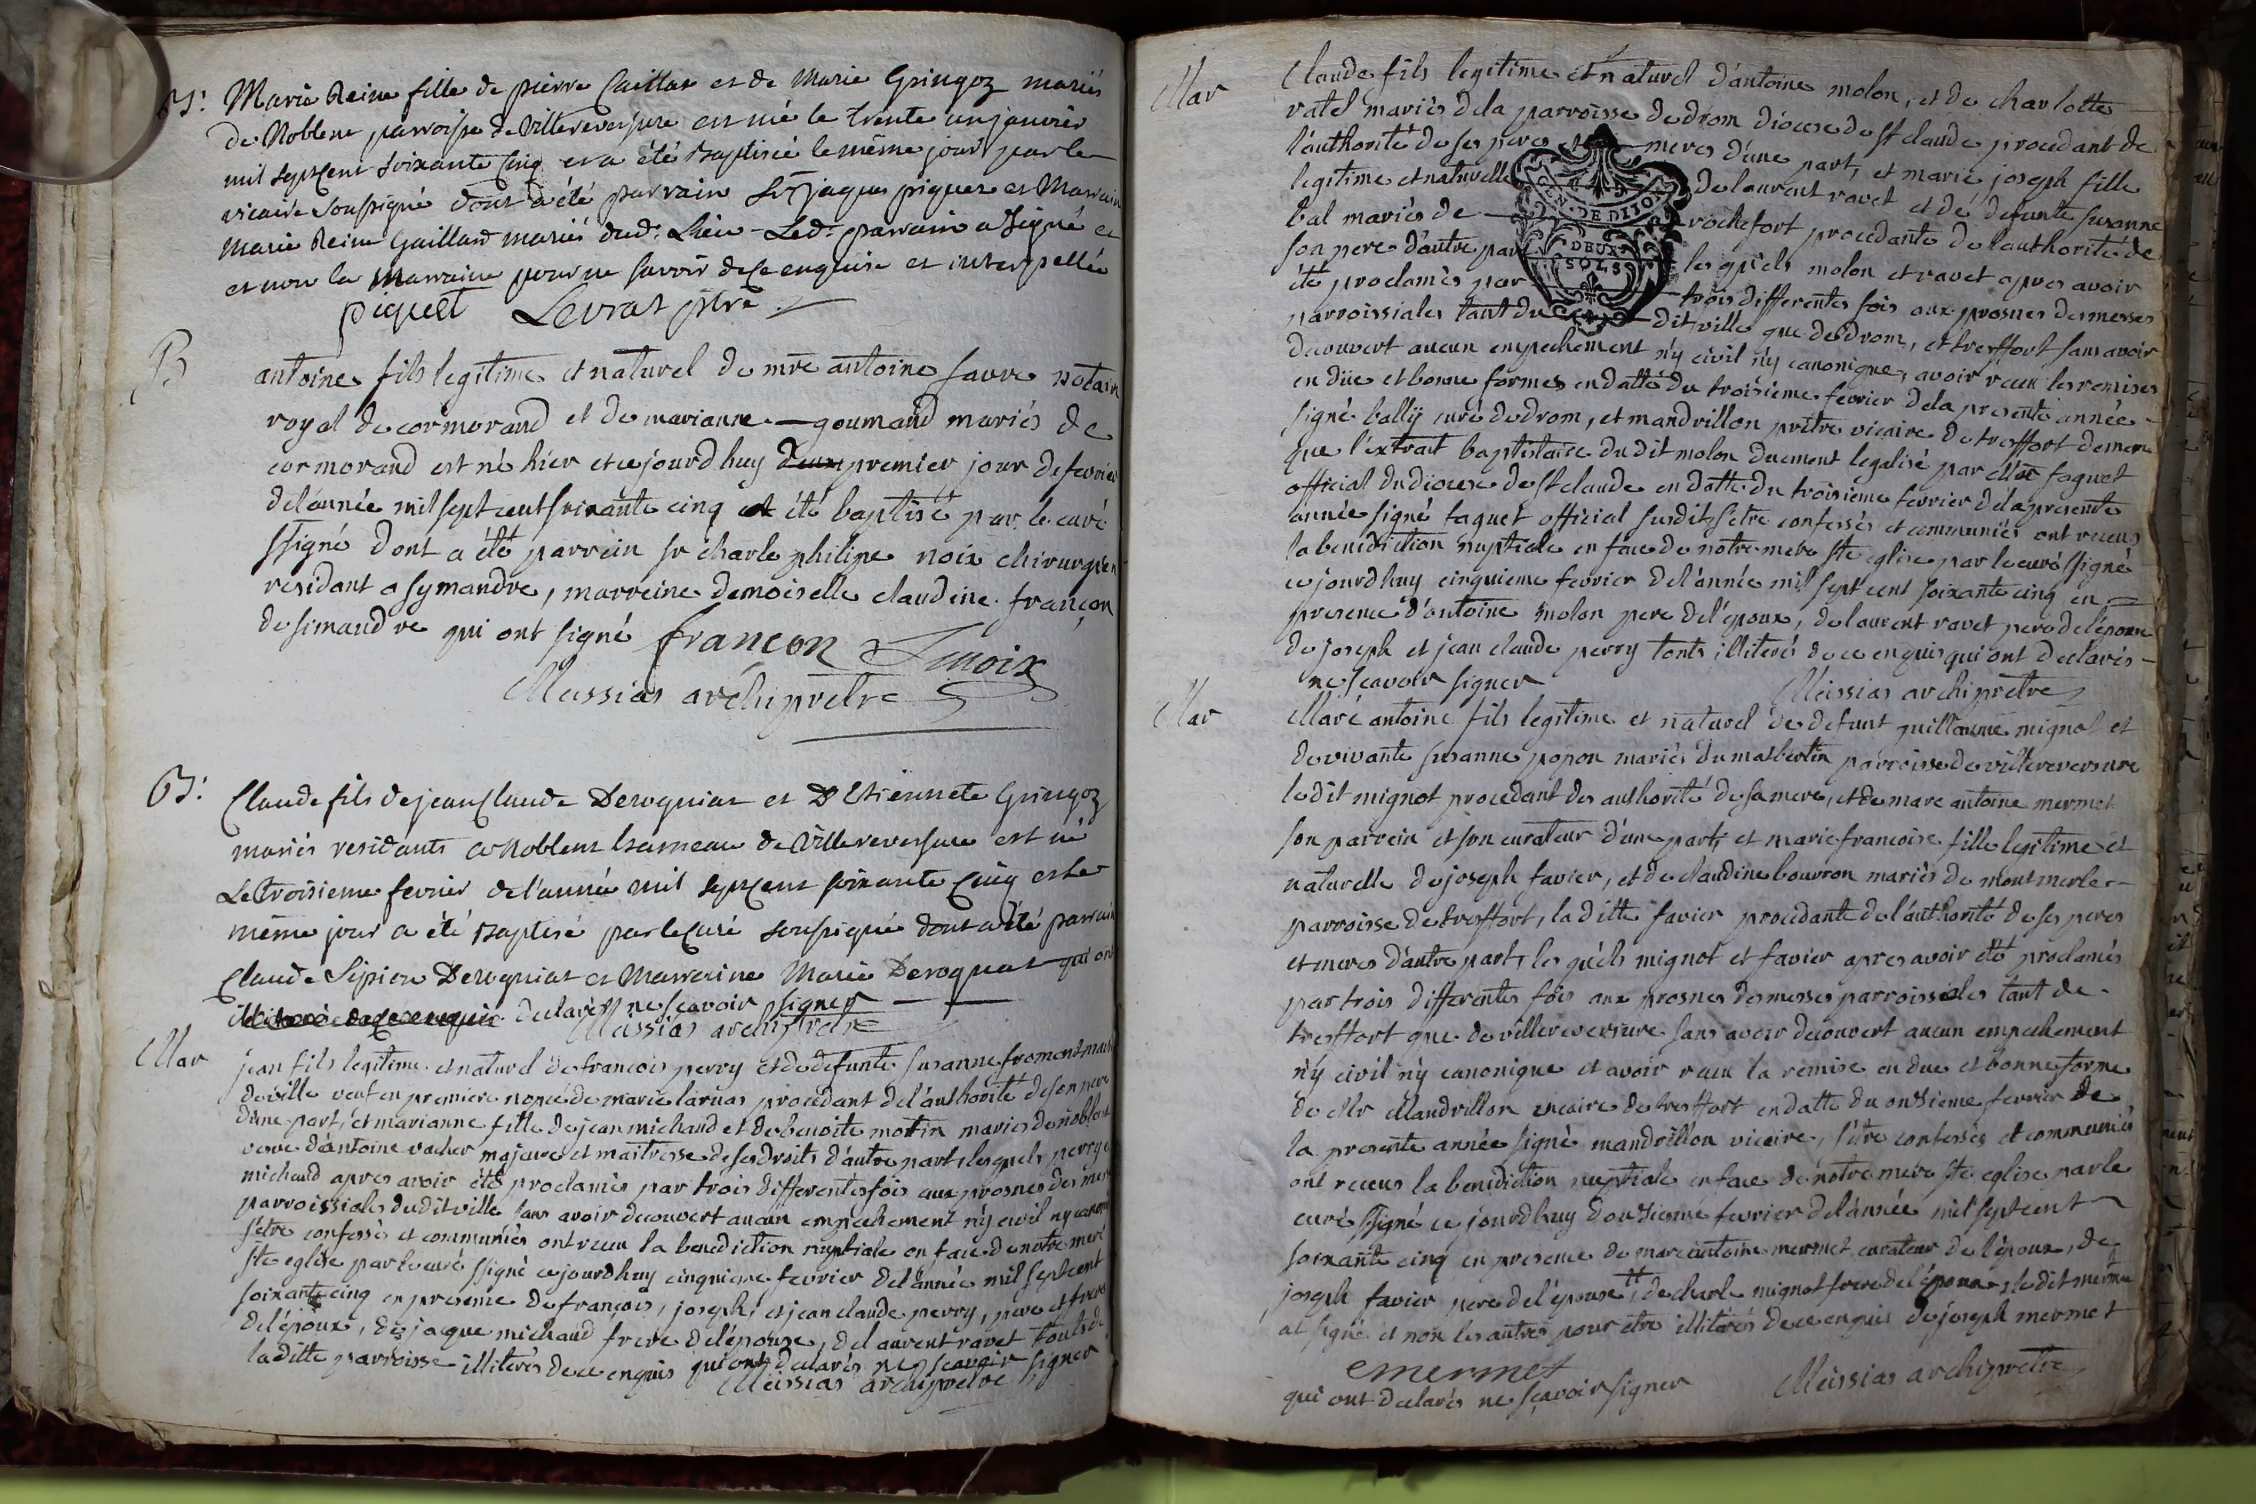 B.
Marie Reine fille de pierre Caillat et de Marie Gringoz mariés
de Noblens parroisse de Villereversure est née le trente un janvier
mil sept cent soixante cinq et a été baptisée le même jour par le
vicaire soussigné dont a été parrain Sr jaques piquet et Marraine
Marie Reine Gaillard mariés dud. Lieu - Led. parrain a signé et
et non la Marraine pour ne savoir de ce enquise et interpellée
piquet Levrat ptre
B
antoine fils legitime et naturel de mre antoine favre notaire
royal de cormorand et de marianne goumand mariés de
cormorand est né hier et cejourd huy premier jour de fevrier
de l'année mil sept cent soixante cinq a été baptisé par le curé
ssigné dont a été parrein sr charle philipe noix chirurgien
residant a symandre, marreine demoiselle claudine françon
de simandre qui ont signé françon Lnoix
Messias archiprêtre
B.
Claude fils de jean Claude Deroguiat et D'Etiennete Gringoz
mariés residants a Noblens hameau de Villereversure est né
Le troisieme fevrier de l'année mil sept cent soixante Cinq et le
même jour a été Baptisé par le Curé soussigné dont a été parrain
Claude Deroguiat et Marraine Marie Deroguiat qui ont
declarés ne scavoir signer
Messias archiprêtre
Mar
jean fils legitime et naturel de francois perry et de defunte susanne froment mariés
de ville veuf en premiere nopce de marie laruas procedant de l'authorité de son pere
d'une part, et marianne fille de jean michaud et de benoite motin mariés de noblens
veuve d'antoine vacher majeure et maitresse de ses droits d'autre part, lesquels perry et
michaud apres avoir été proclamés par trois differentes fois aux prosnes des messes
parroissiales dudit ville sans avoir decouvert aucun empechement n'y civil n'y canonique
s'etre confessés et communiés ont receu la benediction nuptiale en face de notre mere
ste eglise par le curé ssigné cejourdhuy cinquieme fevrier de l'année mil sept cent
soixante cinq en presence de françois, joseph, et jean claude perry, pere et freres
de l'époux, de jaque michaud frere de l'épouse, de laurent ravet touts de
la ditte parroisse illiterés de ce enquis qui ont declarés ne scavoir signer
Messias archiprêtre
Mar
Claude fils legitime et naturel d'antoine molon, et de charlotte
ratel mariés de la parroisse de drom diocese de st claude procedant de
l'authorité de ses peres et meres d'une part, et marie joseph fille
legitime et naturelle de laurent ravet et de defunte susanne
bal mariés de rochefort procedante de l'authorité de
son pere d'autre part les quels molon et ravet apres avoir
été proclamés par trois differentes fois aux prosnes des messes
parroissiales tant du dit ville que de drom, et treffort sans avoir
decouvert aucun empechement n'y civil n'y canonique, avoir receu les remises
en düe et bonne formes en datte du troisieme fevrier de la presente année
signé bally curé de drom, et mandrillon prêtre vicaire de treffort de meme
que l'extrait baptistaire du dit molon duement legalisé par Mr faguet
official du diocese de st claude en datte du troisieme fevrier de la presente
année signé faguet official susdit, s'etre confessés et communiés ont receus
la benediction nuptiale en face de notre mere ste eglise par le curé ssigné
cejourdhuy cinquieme fevrier de l'année mil sept cent soixante cinq en
presence d'antoine molon pere de l'époux, de laurent ravet pere de l'épouse
de joseph et jean claude perry touts illiterés de ce enquis qui ont declarés
ne scavoir signer Messias archiprêtre
GEN. DE DIJON
DEUX
SOLS
Mar
Marc antoine fils legitime et naturel de defunt guillaume mignot et
de vivante susanne popon mariés du masbertin parroisse de villereversure
le dit mignot procedant des authorité de sa mere, et de marc antoine mermet
son parrein et son curateur d'une part, et marie francoise fille legitime et
naturelle de joseph favier, et de claudine bouvron mariés de montmerle
parroisse de treffort, la ditte favier procedante de l'authorité de ses peres
et meres d'autre part, les quéls mignot et favier apres avoir été proclamés
par trois differentes fois aux prosnes des messes parroissiales tant de
treffort que de villereversure sans avoir decouvert aucun empechement
n'y civil n'y canonique et avoir receu la remise en due et bonne forme
de Mr Mandrillon vicaire de treffort en datte du onsieme fevrier de
la presente année signé mandrillon vicaire, s'etre confessés et communiés
ont receus la benidiction nuptiale en face de notre mere ste eglise par le
curé ssigné ce jourdhuy dousieme fevrier de l'année mil sept cent
soixante cinq en presence de marc antoine mermet curateur de l'époux, de
joseph favier pere de l'épouse, de charle mignot frere de l'époux, le dit mermet
at signé et non les autres pour etre illiterés de ce enquis de joseph mermet
emermet Messias archiprêtre
qui ont declarés ne scavoir signer